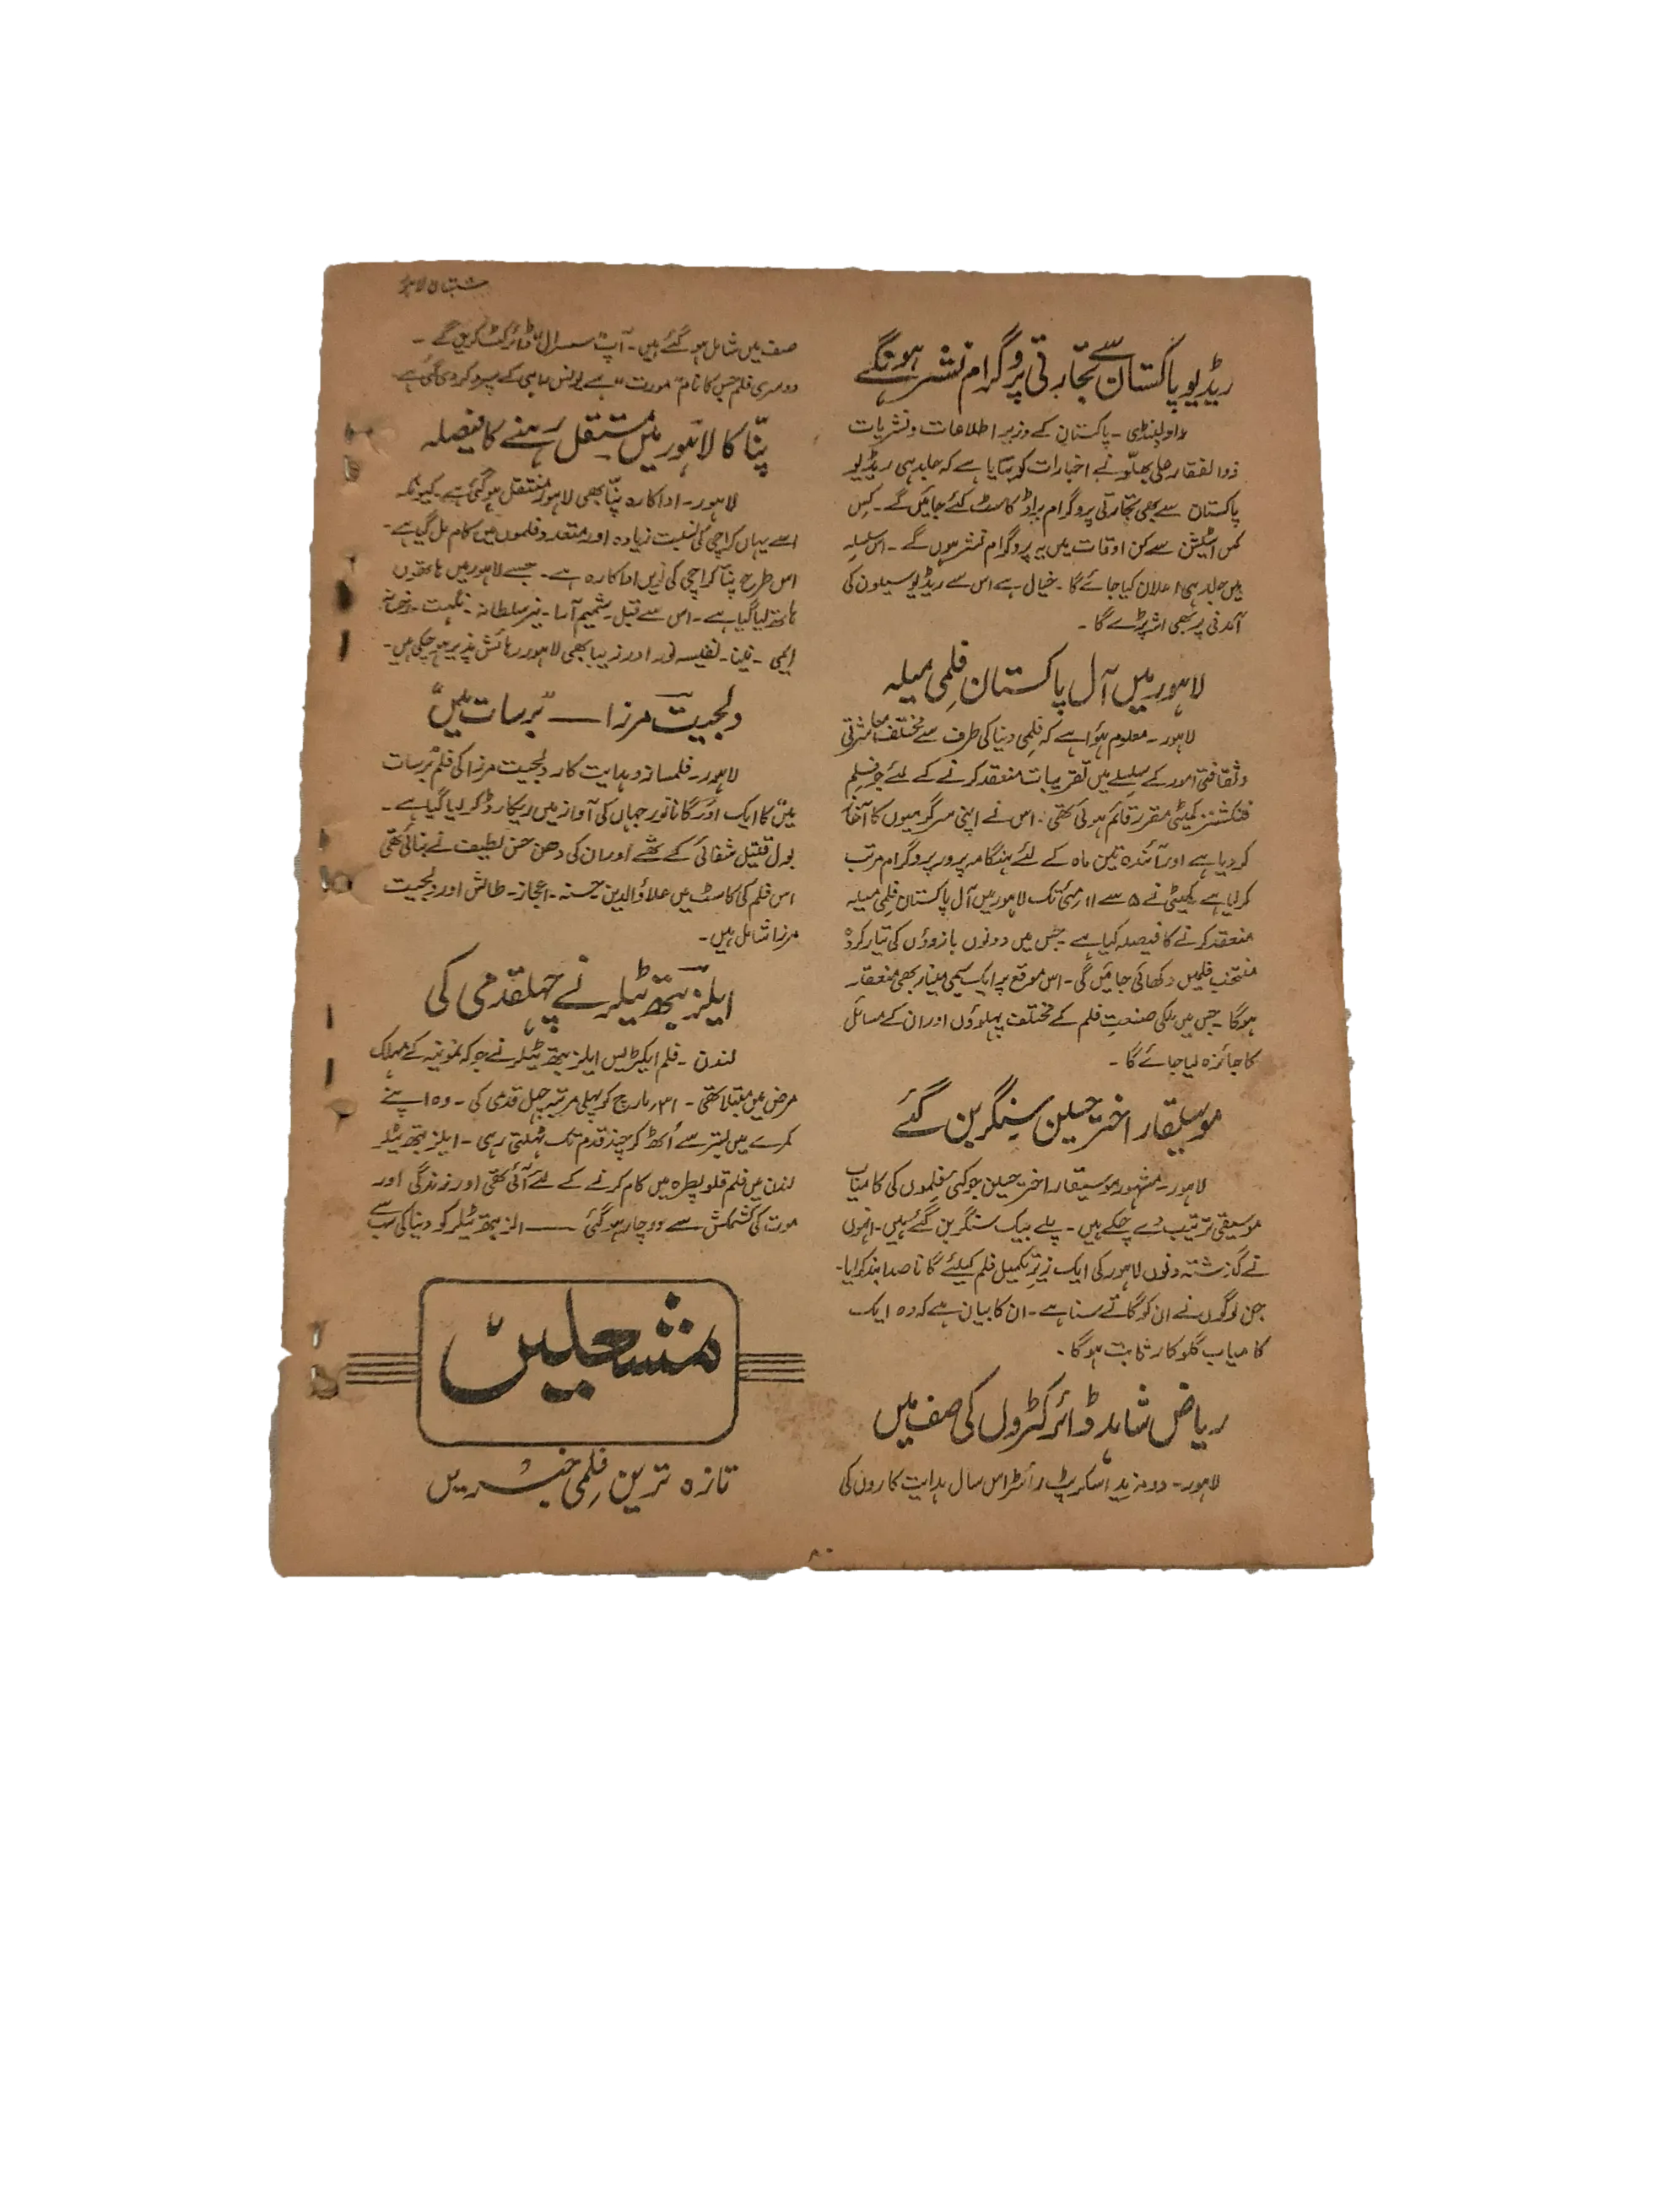 شبستان لاہور
ریڈیو پاکستان سے تجارتی پروگرام نشر ہونگے
راولپنڈی ۔ پاکستان کے وزیر اطلاعات و نشریات
ذوالفقار علی بھٹو نے اخبارات کو بتایا ہے کہ جلد ہی ریڈیو
پاکستان سے بھی تجارتی پروگرام براڈ کاسٹ کئے جائیں گے ۔ کِس
کس اسٹیشن سے کن اوقات میں یہ پروگرام نشر ہوں گے ۔ اس سلسلہ
میں جلد ہی اعلان کیا جائے گا ۔ خیال ہے اس سے ریڈیو سیلون کی
آمدنی پر بھی اثر پڑے گا ۔
لاہور میں آل پاکستان فلمی میلہ
لاہور ۔ معلوم ہُوا ہے کہ فلمی دنیا کی طرف سے مختلف معاشرتی
و ثقافتی امور کے سلسلے میں تقریبات منعقد کرنے کے لئے جو فلم
فنکشنز کمیٹی مقرر قائم ہوئی تھی ۔ اس نے اپنی سرگرمیوں کا آغاز
کر دیا ہے اور آئندہ تین ماہ کے لئے ہنگامہ پرور پروگرام مرتب
کر لیا ہے کمیٹی نے ۵ سے ۱۱ رمئی تک لاہور میں آل پاکستان فلمی میلہ
منعقد کرنے کا فیصلہ کیا ہے جس میں دونوں بازوؤں کی تیار کردہ
منتخب فلمیں دکھائی جائیں گی ۔ اس موقع پر ایک سیمی مینار بھی منعقد
ہوگا ۔ جس میں ملکی صنعتِ فلم کے مختلف پہلوؤں اور ان کے مسائل
کا جائزہ لیا جائے گا ۔
موسیقار اختر حسین سنگر بن گئے
لاہور ۔ مشہور موسیقار اختر حسین جو کئی فلموں کی کامیاب
موسیقی ترتیب دے چکے ہیں ۔ پلے بیک سنگر بن گئے ہیں ۔ انہوں
نے گزشتہ دنوں لاہور کی ایک زیرِ تکمیل فلم کیلئے گانا صدا بند کرایا ۔
جن لوگوں نے ان کو گاتے سنا ہے ۔ ان کا بیان ہے کہ وہ ایک
کامیاب گلوکار ثابت ہوگا ۔
ریاض شاہد ڈائرکٹروں کی صف میں
لاہور ۔ دو مزید اسکرپٹ رائٹر اس سال ہدایت کاروں کی
صف میں شامل ہو گئے ہیں ۔ آپ "سسرال" ڈائرکٹ کریں گے ۔
دوسری فلم جس کا نام "عورت" ہے یونس راہی کے سپرد کر دی گئی ہے
پنّا کا لاہور میں مستقل رہنے کا فیصلہ
لاہور ۔ اداکارہ پنّا بھی لاہور منتقل ہو گئی ہے ۔ کیونکہ
اسے یہاں کراچی کی نسبت زیادہ اور متعدد فلموں میں کام مل گیا ہے ۔
اس طرح پنّا کراچی کی نویں اداکارہ ہے ۔ جسے لاہور میں ہاتھوں
ہاتھ لیا گیا ہے ۔ اس سے قبل ۔ شمیم آرا ۔ نیر سلطانہ ۔ نگہت ۔ رخسانہ
ایمی ۔ نینا ۔ نفیسہ نور اور زیبا بھی لاہور رہائش پذیر ہو چکی ہیں ۔
دلجیت مرزا — "برسات میں"
لاہور ۔ فلمساز و ہدایت کار دلجیت مرزا کی فلم "برسات
میں" کا ایک اور گانا نور جہاں کی آواز میں ریکارڈ کر لیا گیا ہے ۔
بول قتیل شفائی کے تھے اور ان کی دھن حسن لطیف نے بنائی تھی
اس فلم کی کاسٹ میں علاؤالدین حسنہ ۔ اعجاز ۔ طالش اور دلجیت
مرزا شامل ہیں ۔
ایلز بتھ ٹیلر نے چہلقدمی کی
لندن ۔ فلم ایکٹریس ایلز بتھ ٹیلر نے جو کہ نمونیہ کے مہلک
مرض میں مبتلا تھی ۔ ۳۱ رمارچ کو پہلی مرتبہ چہل قدمی کی ۔ وہ اپنے
کمرے میں بستر سے اُٹھ کر چند قدم تک ٹہلتی رہی ۔ ایلز بتھ ٹیلر
لندن میں فلم قلو پطرہ میں کام کرنے کے لئے آئی تھی اور زندگی اور
موت کی کشمکش سے دوچار ہو گئی — الز بتھ ٹیلر کو دنیا کی سب سے
مشعلیں
تازہ ترین فلمی خبریں
۸۰